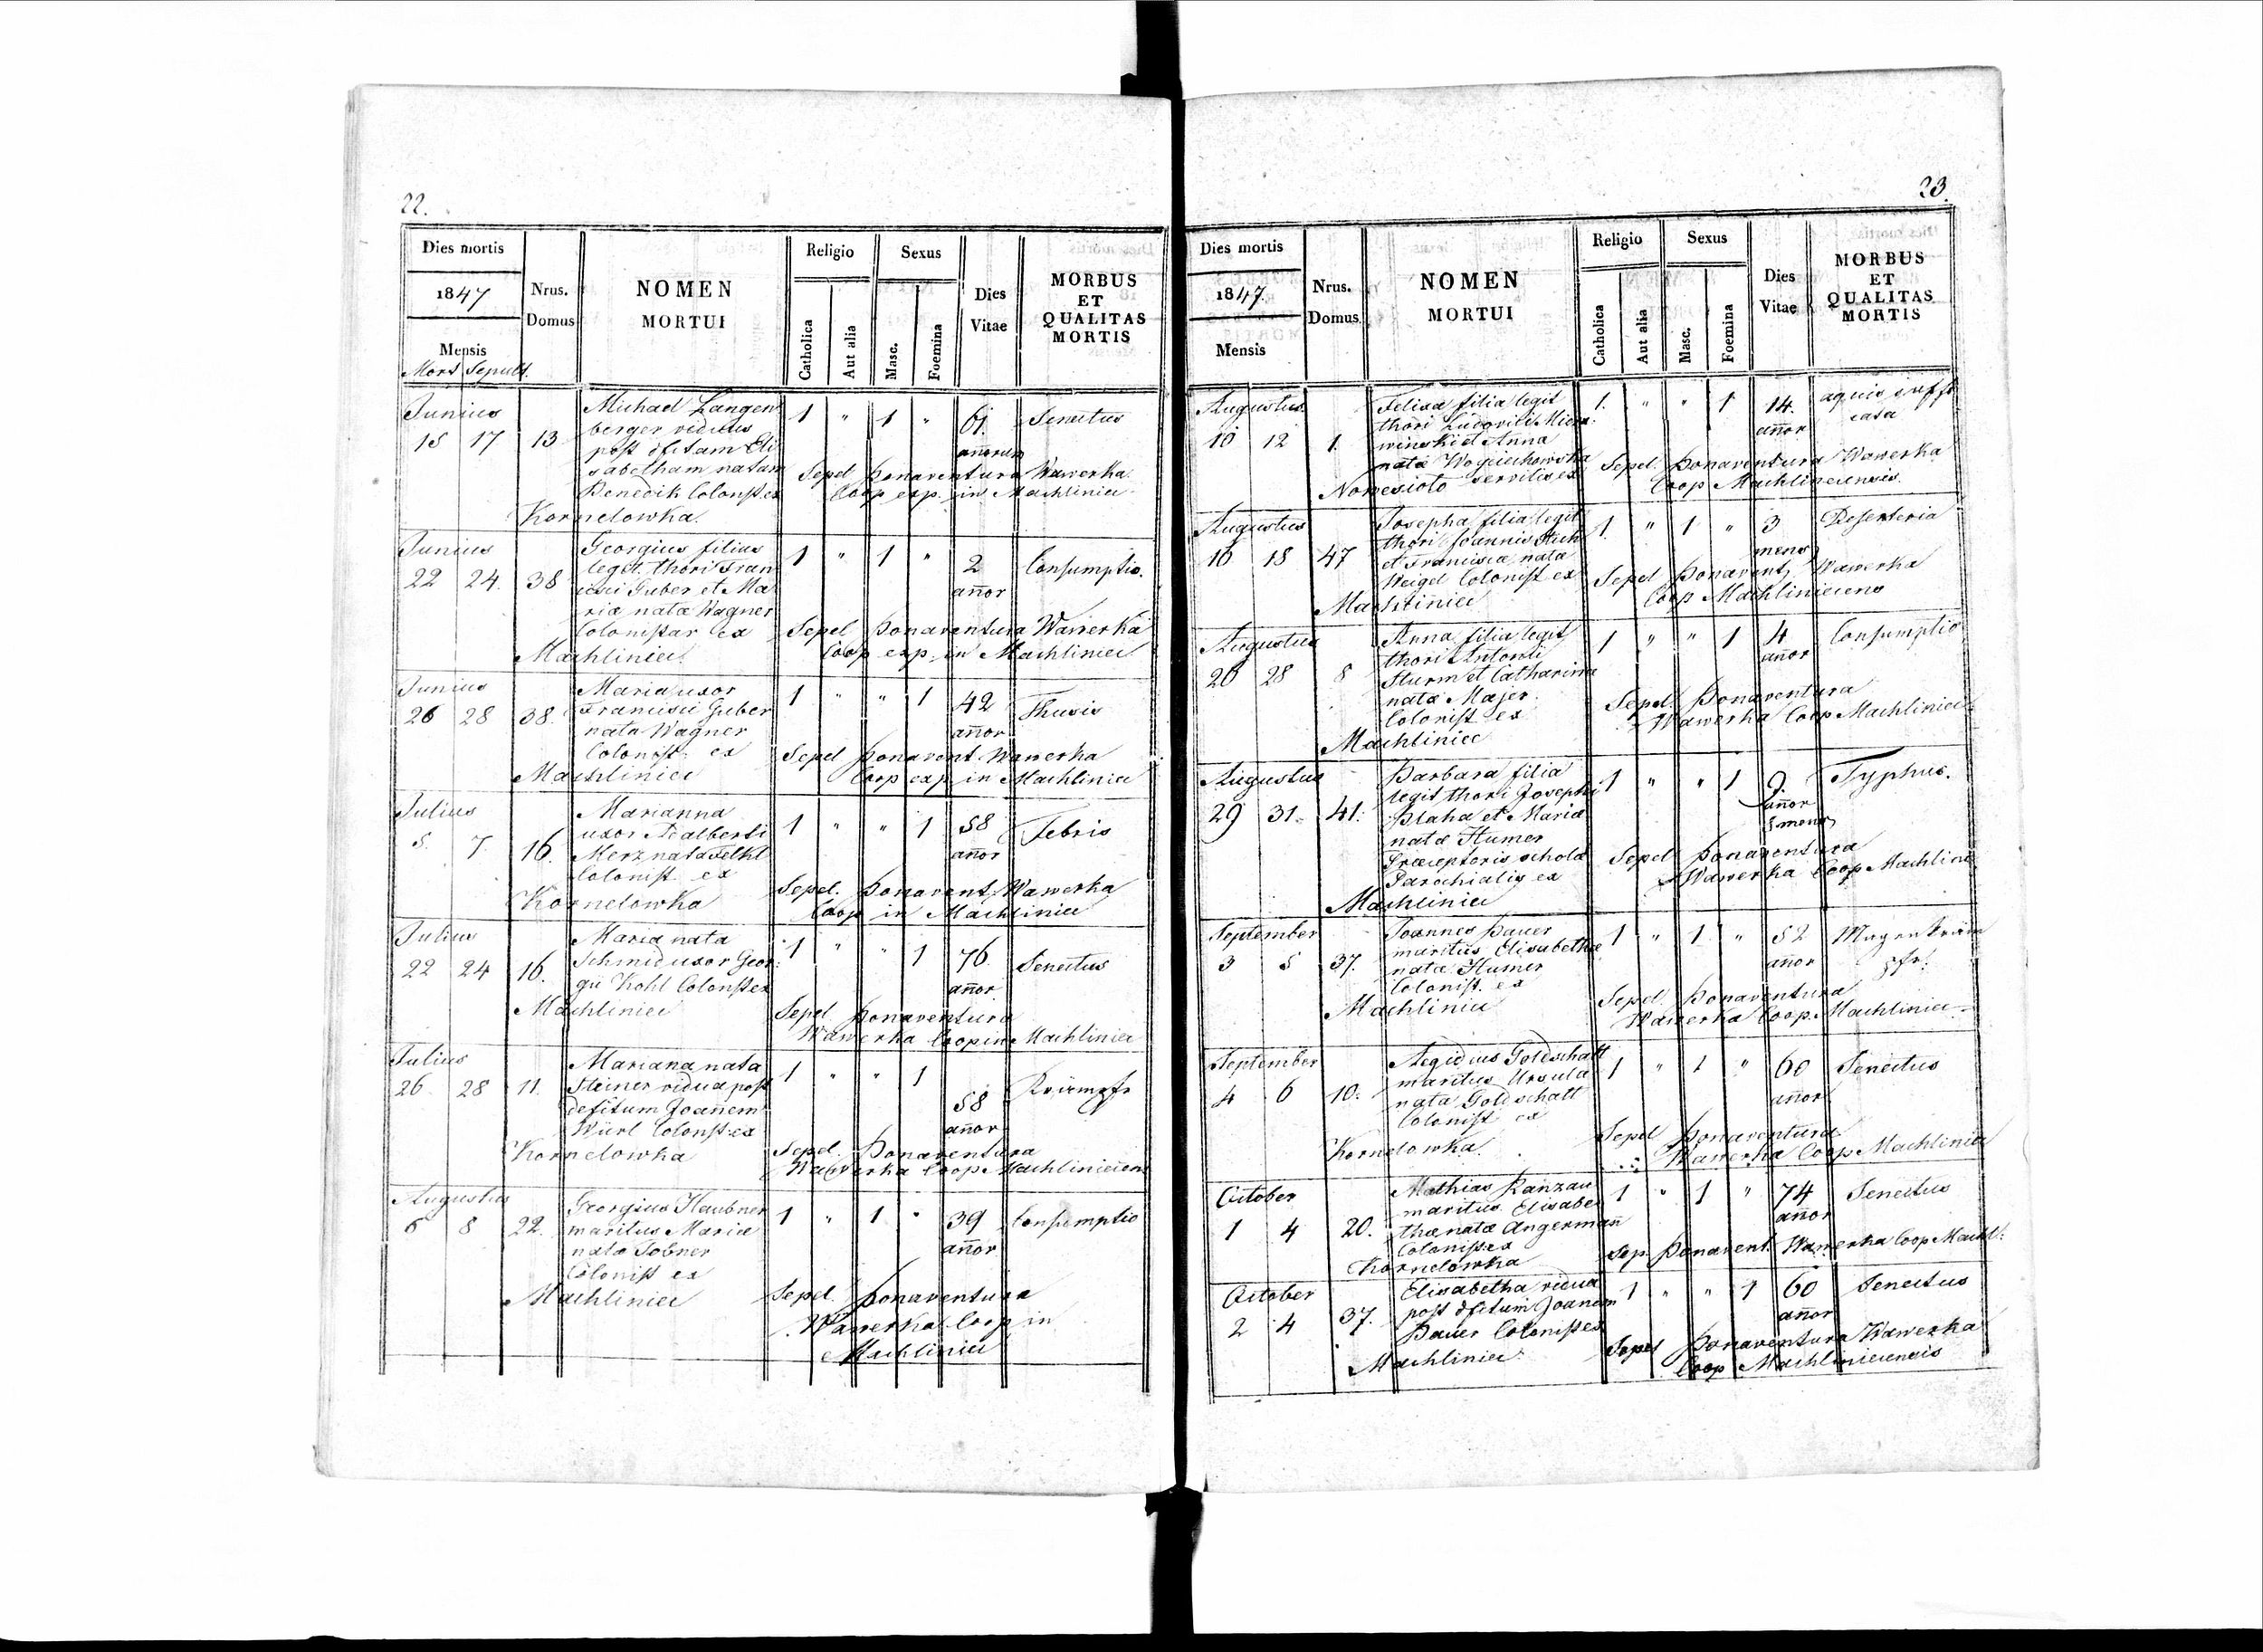 22.
Dies mortis
1847
Mensis
Mort Sepult.
Nrus.
Domus
NOMEN
MORTUI
Religio
Catholica
Aut alia
Sexus
Masc.
Foemina
Dies
Vitae
MORBUS
ET
QUALITAS
MORTIS
Junius
15 17 13
Michael Langen
berger viduus
post dfctam Eli
sabetham natam
Benedik Colonist ex
Kornelowka.
1 " 1 " 61. Senectus
annorum
Sepel Bonaventura Wawerka
Coop exp. in Machliniec
Junius
22 24. 38
Georgius filius
legit. thori Fran
cisci Guber et Ma
ria nata Wagner
Colonistar ex
Machliniec
1 " 1 " 2 Consumptio.
annor
Sepel Bonaventura Wawerka
Coop exp. in Machliniec
Junius
26 28 38.
Maria uxor
Francisci Guber
nata Wagner
Colonist. ex
Machliniec
1 " " 1 42 Thusis
annor
Sepel Bonavent. Wawerka
Coop exp in Machliniec
Julius
5. 7. 16.
Marianna
uxor Adalberti
Merz nata
Colonist. ex
Kornelowka
1 " " 1 58 Febris
annor
Sepel. Bonavent. Wawerka
Coop in Machliniec
Julius
22 24 16.
Maria nata
Schmid uxor Geor:
gii Kohl Colonist ex
Machliniec
1 " " 1 76. Senectus
annor
Sepel Bonaventura
Wawerka Coop in Machliniec
Julius
26 28 11.
Mariana nata
Steiner vidua post
defctum Joannem
Würl Colonist. ex
Kornelowka
1 " " 1 58
annor
Sepel. Bonaventura
Wawerka Coop Machliniecens
Augustus
6 8 22.
Georgius Haubner
maritus Maria
nata Tobner
Colonist ex
Machliniec
1 " 1 " 39 Consumptio
annor
Sepel. Bonaventura
Wawerka Coop in
Machliniec
23.
Dies mortis
1847.
Mensis
Nrus.
Domus
NOMEN
MORTUI
Religio
Catholica
Aut alia
Sexus
Masc.
Foemina
Dies
Vitae
MORBUS
ET
QUALITAS
MORTIS
Augustus
10 12 1.
Felixa filia legit
thori Ludovici
et Anna
nata Wojciechowska
servilis ex
1. " " 1 14. aquis suffo
annor cata
Sepel. Bonaventura Wawerka
Coop Machlineciensis.
Augustus
16 18 47
Josepha filia legit
thori Joannis
et Francisca nata
Weigel Colonist ex
Machliniec
1. " 1 " 3 Desenteria
mens
Sepel Bonavent, Wawerka
Coop Machliniecens
Augustus
26 28 8
Anna filia legit
thori Antonii
Sturm et Catharina
nata Majer
Colonist ex
Machliniec
1 " " 1 4 Consumptio
annor
Sepel. Bonaventura
Wawerka Coop Machliniec
Augustus
29 31. 41.
Barbara filia
legit thori Josephi
Blaha et Maria
nata Humer
Praeceptoris schola
Parochialis ex
Machliniec
1 " " 1 9 Typhus.
annor
5 mens
Sepel Bonaventura
Wawerka Coop Machlinie
September
3 5 37.
Joannes Bauer
maritus Elisabetha
nata Humer
Colonist. ex
Machliniec
1 " 1 " 52
annor
Sepel. Bonaventura
Wawerka Coop. Machliniec
September
4 6 10.
Aegidius Goldschatt
maritus Ursula
nata Goldschatt
Colonist ex
Kornelowka.
1 " 1 " 60 Senectus
annor
Sepel Bonaventura
Wawerka Coop Machliniec
October
1 4 20.
Mathias Ranzau
maritus Elisabe
tha nata Angermann
Colonist ex
Kornelowka
1 " 1 " 74 Senectus
annor
Sep. Bonavent. Wawerka Coop Machl:
October
2 4 37.
Elisabetha vidua
post dfctum Joannem
Bauer Colonist ex
Machliniec
1 " " 1 60 Senectus
annor
Sepel Bonaventura Wawerka
Coop Machliniecensis